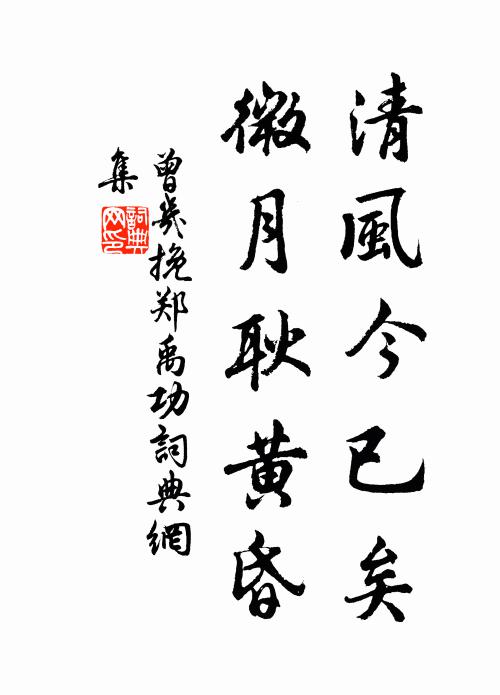 清風今已矣
微月耿黄昏
曾幾挽郑禹功詞典網
集
詞典網印